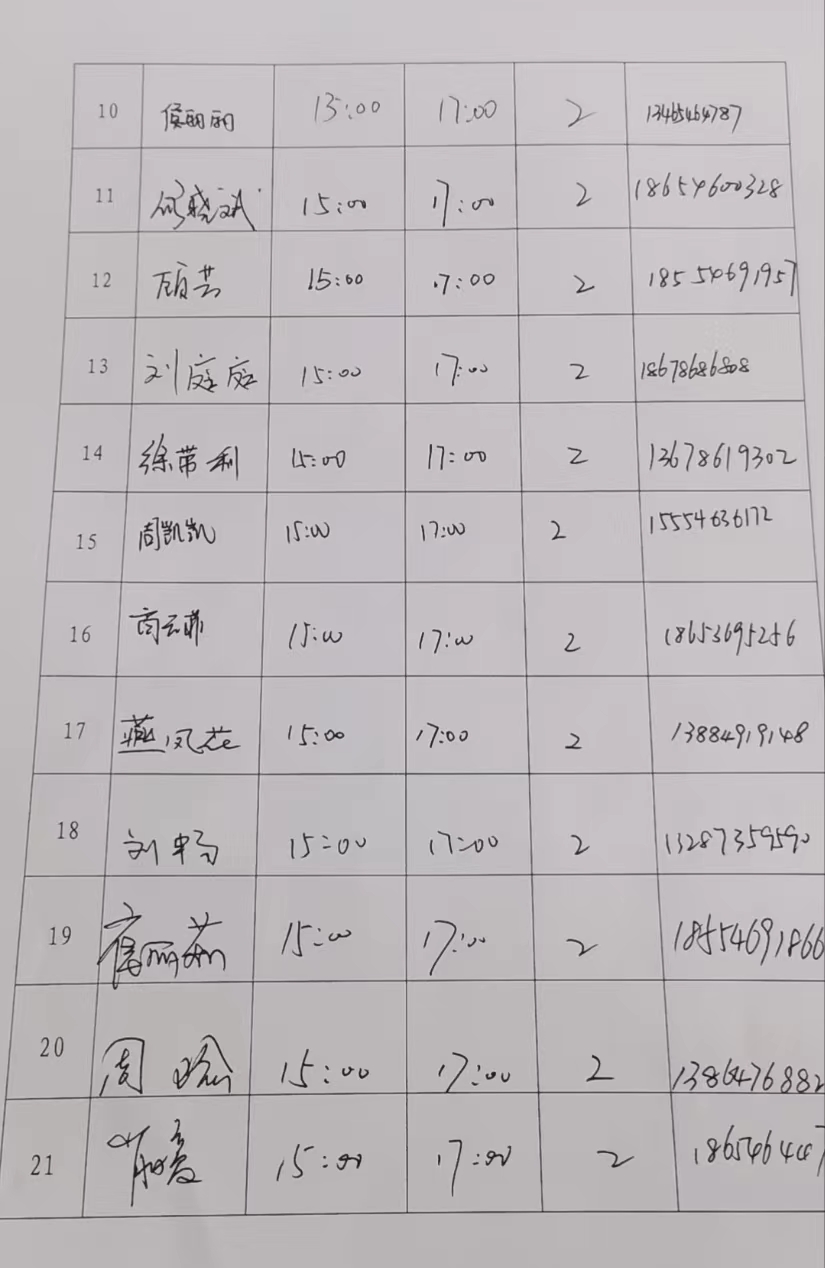 10 侯丽丽 15:00 17:00 2 13465464787
11 15:00 17:00 2 18654600328
12 顾芸 15:00 17:00 2 18554691957
13 刘庭庭 15:00 17:00 2 18678686808
14 徐带利 15:00 17:00 2 13678619302
15 周凯凯 15:00 17:00 2 15554636172
16 商云菲 15:00 17:00 2 18653695256
17 燕凤花 15:00 17:00 2 13884919148
18 刘畅 15:00 17:00 2 13287359590
19 15:00 17:00 2 18554691866
20 周 15:00 17:00 2 1386476882
21 15:00 17:00 2 186546447